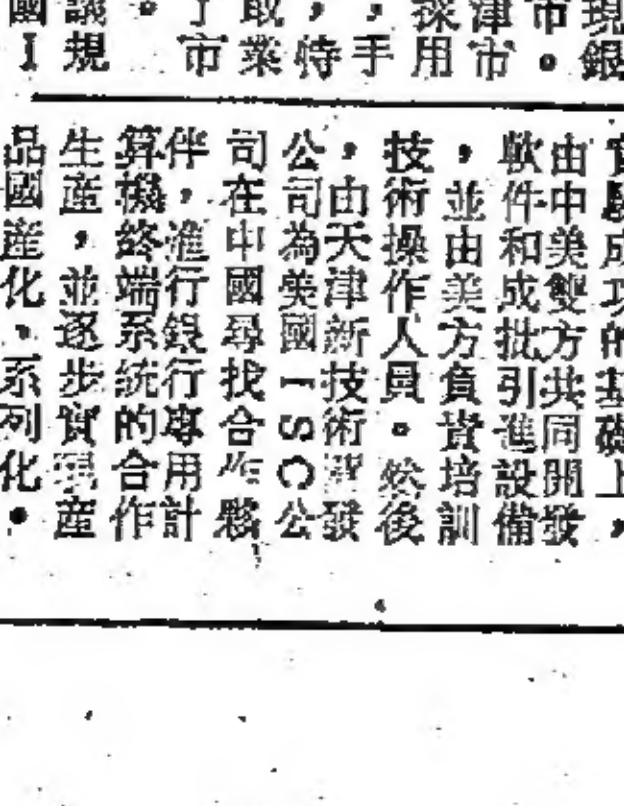 現銀
市。
津市
採用
，手
，特
取業
了市
。
議規
國I
實驗成功的基礎上，
由中美雙方共同開發
軟件和成批引進設備
，並由美方負責培訓
技術操作人員。然後
，由天津新技術開發
公司為美國ISC公
司在中國尋找合作夥
伴，進行銀行專用計
算機終端系統的合作
生產，並逐步實現產
品國產化、系列化。